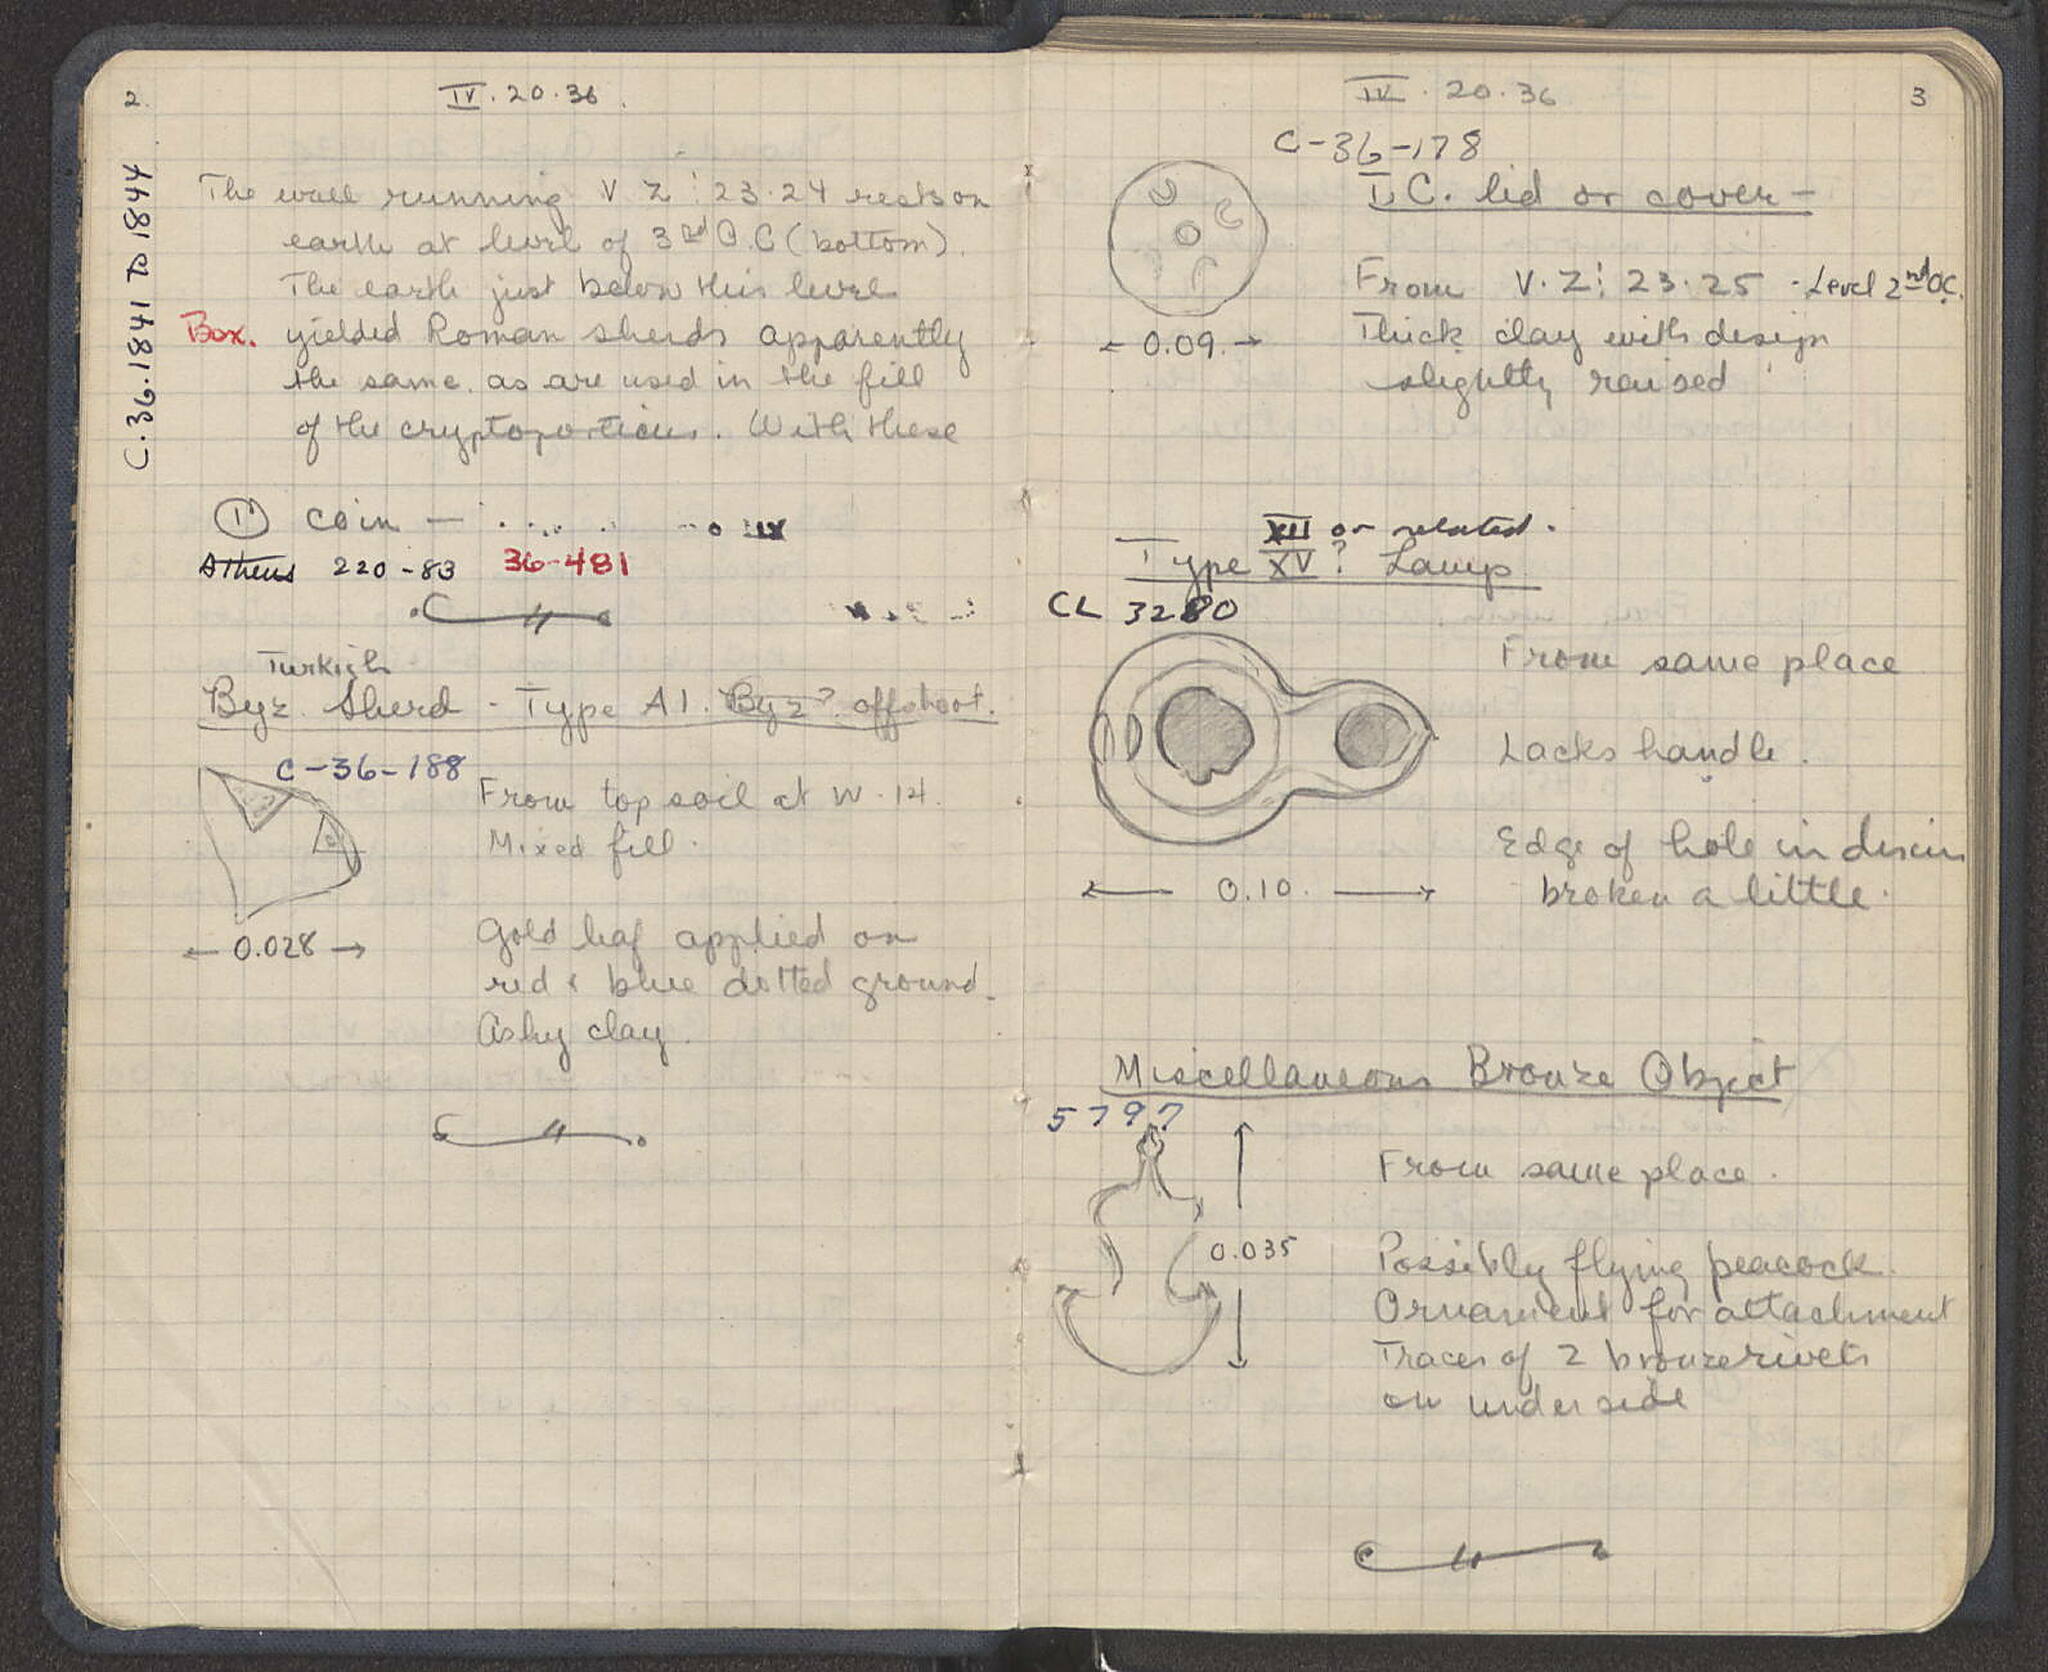 2.
IV. 20. 36.
C.36.1841 to 1844
The wall running V Z! 23.24 rests on
earth at level of 3rd O.C (bottom).
The earth just below this level
Box. yielded Roman sherds apparently
the same as are used in the fill
of the cryptoporticus. With these
① coin —
Athens 220-83 36-481
Turkish
Byz. Sherd - Type A1. Byz? offshoot.
C-36-188
From top soil at W.14.
Mixed fill.
Gold leaf applied on
← 0.028 →
red & blue dotted ground.
Ashy clay.
IV. 20. 36
3
C-36-178
T.C. lid or cover -
From V.Z! 23.25 - Level 2nd O.C.
← 0.09. →
Thick clay with design
slightly raised
XII or related.
Type XV? Lamp
CL 3280
From same place
Lacks handle.
Edge of hole in discus
broken a little.
← 0.10. →
Miscellaneous Bronze Object
5797
From same place.
0.035
Possibly flying peacock.
Ornament for attachment
Traces of 2 bronze rivets
on under side